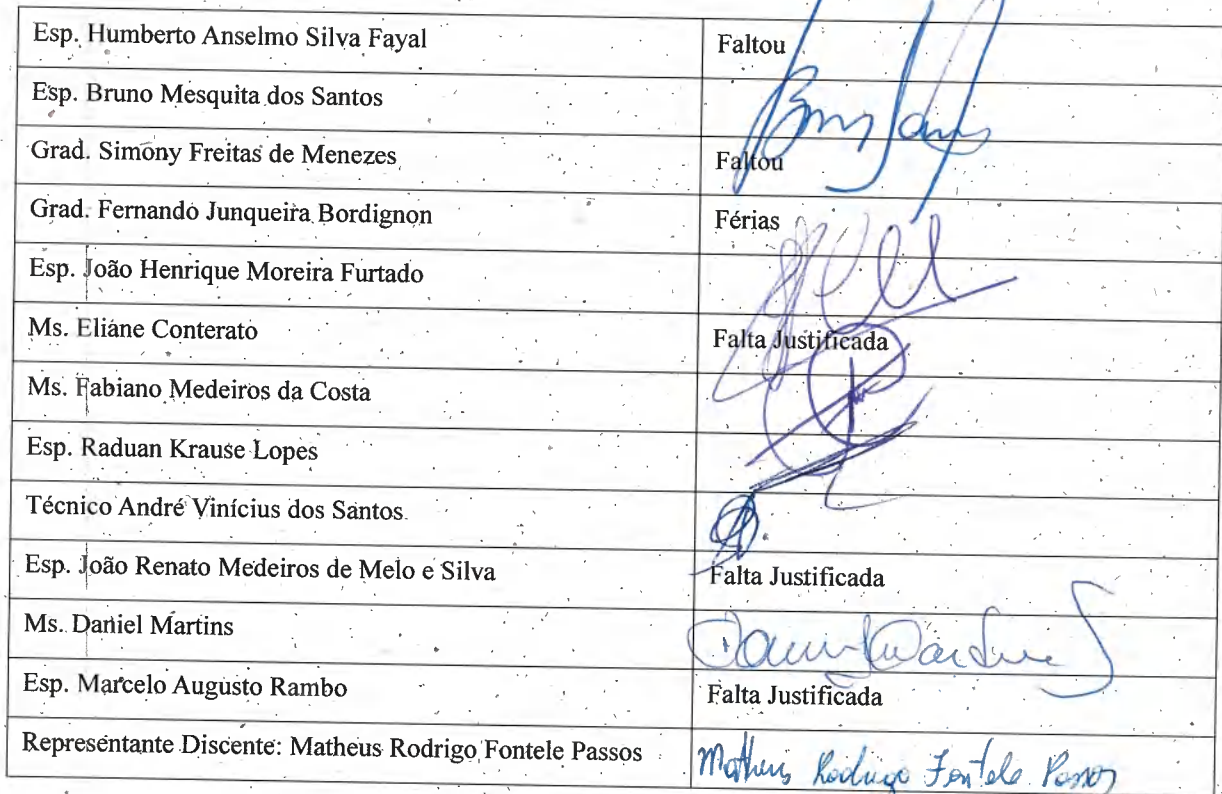 Esp. Humberto Anselmo Silva Fayal Faltou
Esp. Bruno Mesquita dos Santos
Grad. Simony Freitas de Menezes Faltou
Grad. Fernando Junqueira Bordignon Férias
Esp. João Henrique Moreira Furtado
Ms. Eliane Conterato Falta Justificada
Ms. Fabiano Medeiros da Costa
Esp. Raduan Krause Lopes
Técnico André Vinícius dos Santos
Esp. João Renato Medeiros de Melo e Silva Falta Justificada
Ms. Daniel Martins
Esp. Marcelo Augusto Rambo Falta Justificada
Representante Discente: Matheus Rodrigo Fontele Passos Matheus Rodrigo Fontele Passos